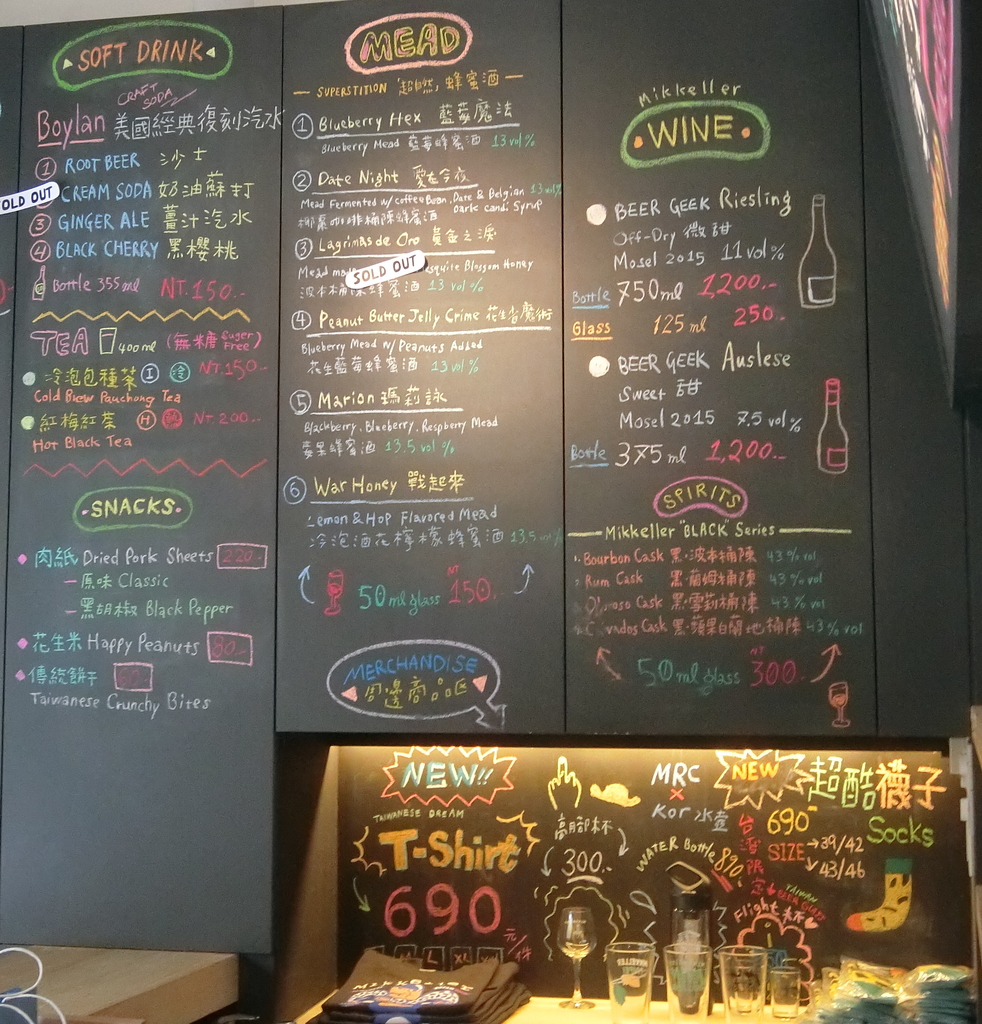 SOFT DRINK
CRAFT SODA
Boylan 美國經典復刻汽水
① ROOT BEER 沙士
SOLD OUT
CREAM SODA 奶油蘇打
③ GINGER ALE 薑汁汽水
④ BLACK CHERRY 黑櫻桃
Bottle 355ml NT.150.-
TEA 400ml (無糖 Suger Free)
冷泡包種茶 I 冷 NT.150-
Cold Brew Pauchong Tea
紅梅紅茶 H 熱 NT.200.-
Hot Black Tea
SNACKS
肉紙 Dried Pork Sheets 220.-
原味 Classic
黑胡椒 Black Pepper
花生米 Happy Peanuts 80.-
傳統餅干
Taiwanese Crunchy Bites
MEAD
SUPERSTITION '超自然' 蜂蜜酒
① Blueberry Hex 藍莓魔法
Blueberry Mead 藍莓蜂蜜酒 13 vol %
② Date Night 愛在今夜
Mead Fermented w/ coffee Bean, Date & Belgian Dark candi Syrup 13 vol%
椰棗咖啡桶陳蜂蜜酒
③ Lagrimas de Oro 黃金之淚
Mead SOLD OUT Mesquite Blossom Honey
波本桶陳蜂蜜酒 13 vol %
④ Peanut Butter Jelly Crime 花生醬魔術
Blueberry Mead w/ Peanuts Added
花生藍莓蜂蜜酒 13 vol %
⑤ Marion 瑪莉詠
Blackberry, Blueberry, Raspberry Mead
莓果蜂蜜酒 13.5 vol %
⑥ War Honey 戰起來
Lemon & Hop Flavored Mead
冷泡酒花檸檬蜂蜜酒 13.5 vol %
50ml glass NT 150.-
MERCHANDISE
周邊商品區
Mikkeller
WINE
BEER GEEK Riesling
Off-Dry 微甜
Mosel 2015 11 vol %
Bottle 750ml 1,200.-
Glass 125 ml 250.-
BEER GEEK Auslese
Sweet 甜
Mosel 2015 7.5 vol %
Bottle 375 ml 1,200.-
SPIRITS
Mikkeller "BLACK" Series
Bourbon Cask 黑·波本桶陳 43 % vol
Rum Cask 黑·蘭姆桶陳 43 % vol
Cask 黑·雪莉桶陳 43 % vol
Cask 黑·蘋果白蘭地桶陳 43 % vol
50ml glass NT 300.-
NEW!!
TAIWANESE DREAM
T-Shirt
690 元/件
L XL
高腳杯
300.-
MRC
×
Kor 水壺
WATER Bottle 890
NEW
超酷襪子
Socks
690-
SIZE →39/42
43/46
台灣限定
TAIWAN BEER GLASS
Flight 杯